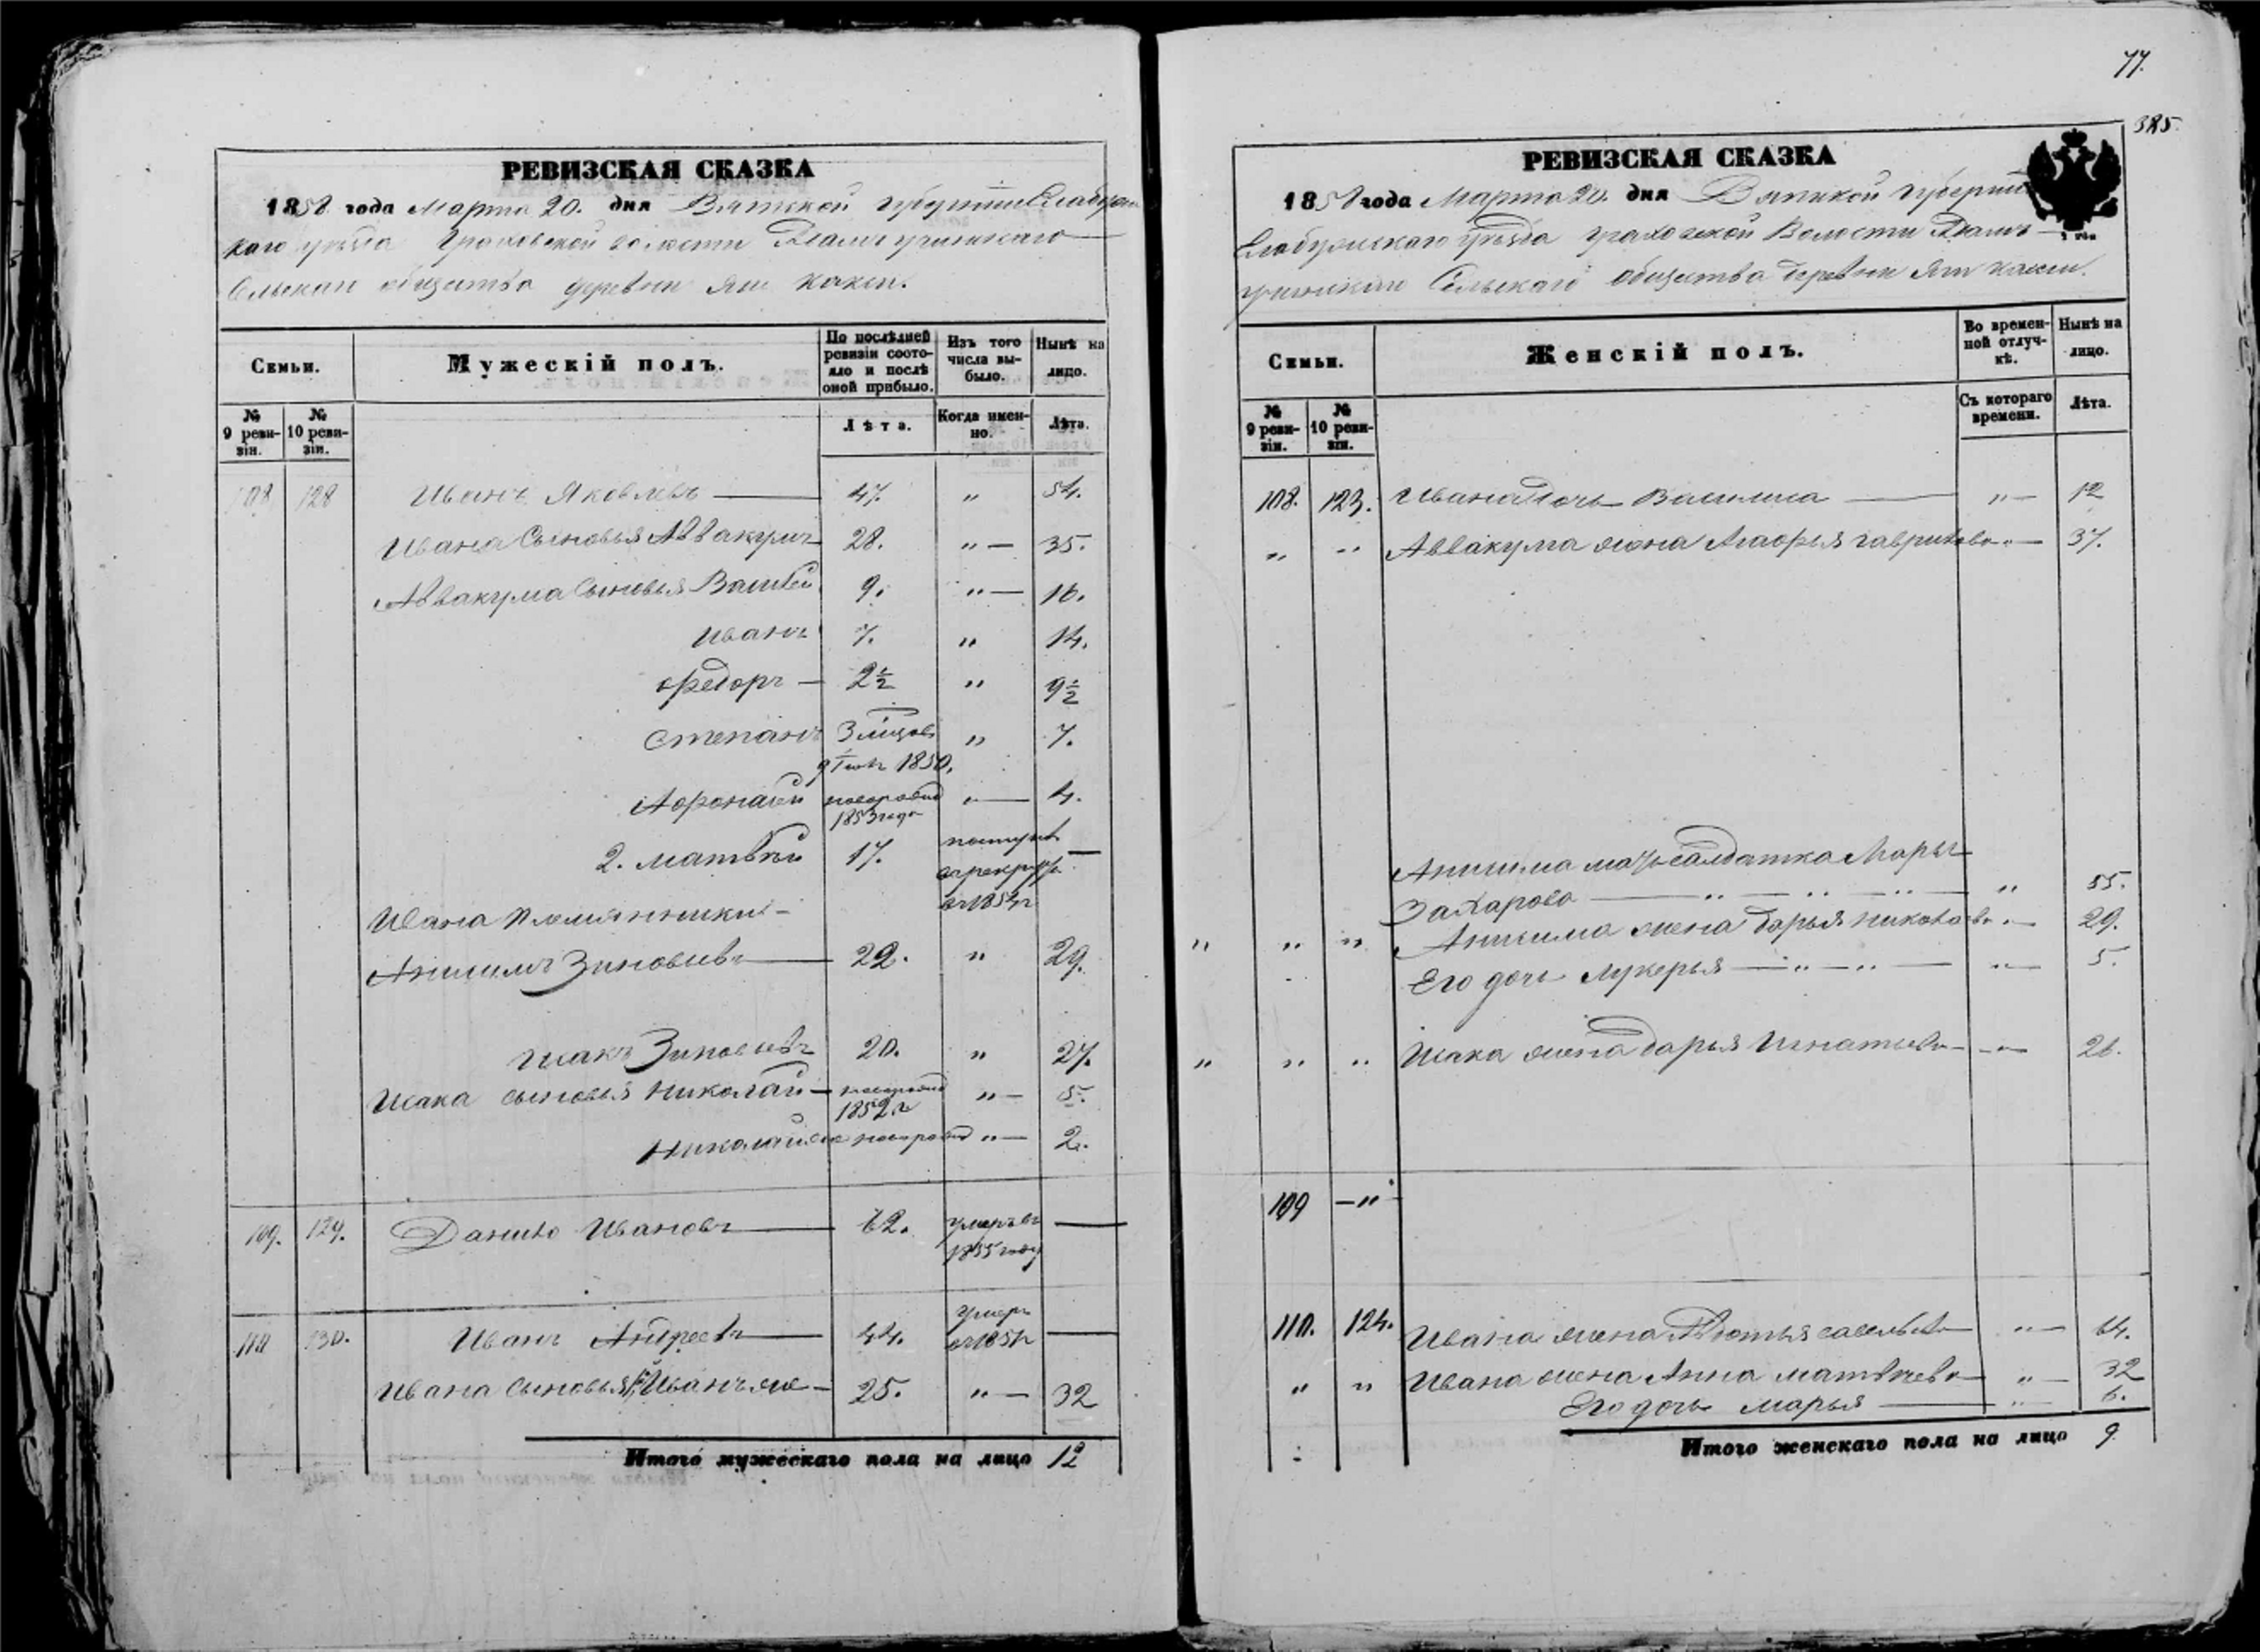 77.
385.
РЕВИЗСКАЯ СКАЗКА
1858 года Марта 20. дня Вятской губернии Елабужс
каго уѣзда Граховской волости
Сельскаго общества деревни Яги какси.
Семьи.
Мужескій полъ.
По послѣдней ревизіи состояло и послѣ оной прибыло.
Изъ того числа выбыло.
Нынѣ на лицо.
№ 9 ревизіи.
№ 10 ревизіи.
Лѣта.
Когда именно.
Лѣта.
108 128 Иванъ Яковлевъ 47. " 54.
Ивана Сыновья Аввакумъ 28. " 35.
Аввакума Сыновья 9. " 16.
Иванъ 7. " 14.
Федоръ 2½ " 9½
Степанъ 3 мѣсяц. " 7.
1850.
Афонасей новорожд " 4.
1853 года
2. Матвѣй 17. поступ.
въ рекруты
въ 1854 г
Ивана племянники
Анисимъ Зиновьевъ 22. " 29.
Исакъ Зиновьевъ 20. " 27.
Исака сыновья Николай новорожд " 5.
1852 г
Николай же новорожд " 2.
109. 129. Данило Ивановъ 62. умеръ въ
1855 году
110 130. Иванъ Андреевъ 44. умеръ
въ 185
Ивана Сыновья Иванъ же 25. " 32
Итого мужескаго пола на лицо 12
РЕВИЗСКАЯ СКАЗКА
1858 года Марта 20. дня Вятской губернии
Елабужскаго уѣзда Граховской Волости
Сельскаго общества деревни Яги какси.
Семьи.
Женскій полъ.
Во временной отлучкѣ.
Нынѣ на лицо.
№ 9 ревизіи.
№ 10 ревизіи.
Съ котораго времени.
Лѣта.
108. 123. Ивана дочь Василиса " 12
" " Аввакума жена Агафья Гаврилова " 37.
Анисима мать салдатка Марья
Захарова " 55.
" " " Анисима жена Дарья Николаева 29.
Его дочь Лукерья " 5.
" " " Исака жена Дарья Игнатьева 26.
109 "
110. 124. Ивана жена Авдотья Савельева " 64.
" " Ивана жена Анна Матвѣева " 32
Его дочь Марья " 6.
Итого женскаго пола на лицо 9